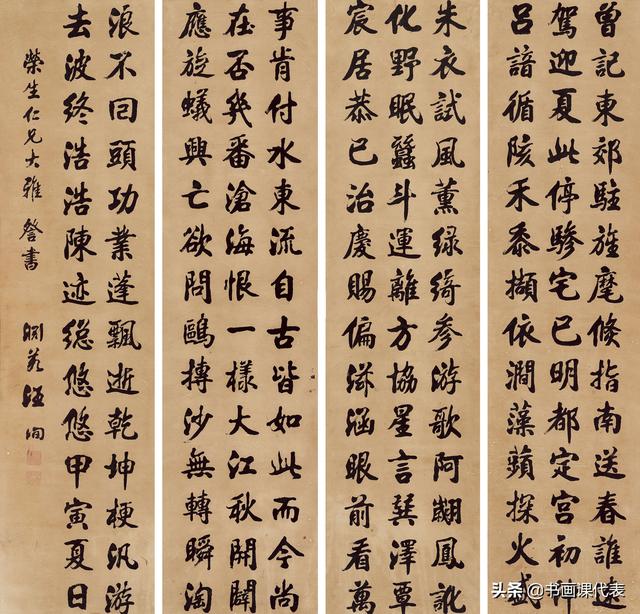 曾記東郊駐旌麾倏指南送春誰
駕迎夏此停驂宅已明都定宮初
呂諳循陔禾黍擷依澗藻蘋探火
朱衣試風薰綠綺參游歌阿翽鳳訛
化野眠蠶斗運離方協星言巽澤覃
宸居恭已治慶賜偏滋涵眼前看萬
事肯付水東流自古皆如此而今尚
在否幾番滄海恨一樣大江秋開闢
應旋蟻興亡欲問鷗摶沙無轉瞬淘
浪不回頭功業蓬飄逝乾坤梗汎游
去波終浩浩陳迹總悠悠甲寅夏日
榮生仁兄大雅詧書 淵若汪洵
头条 @书画课代表